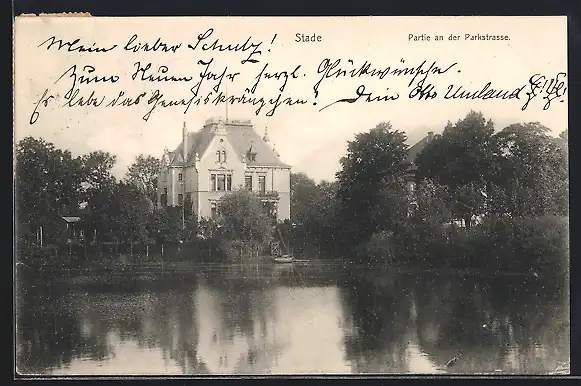 Mein lieber Schultz!
Stade
Partie an der Parkstrasse.
Zum Neuen Jahr herzl. Glückwünsche.
Es lebe das Geneseskränzchen! Dein Otto Umland